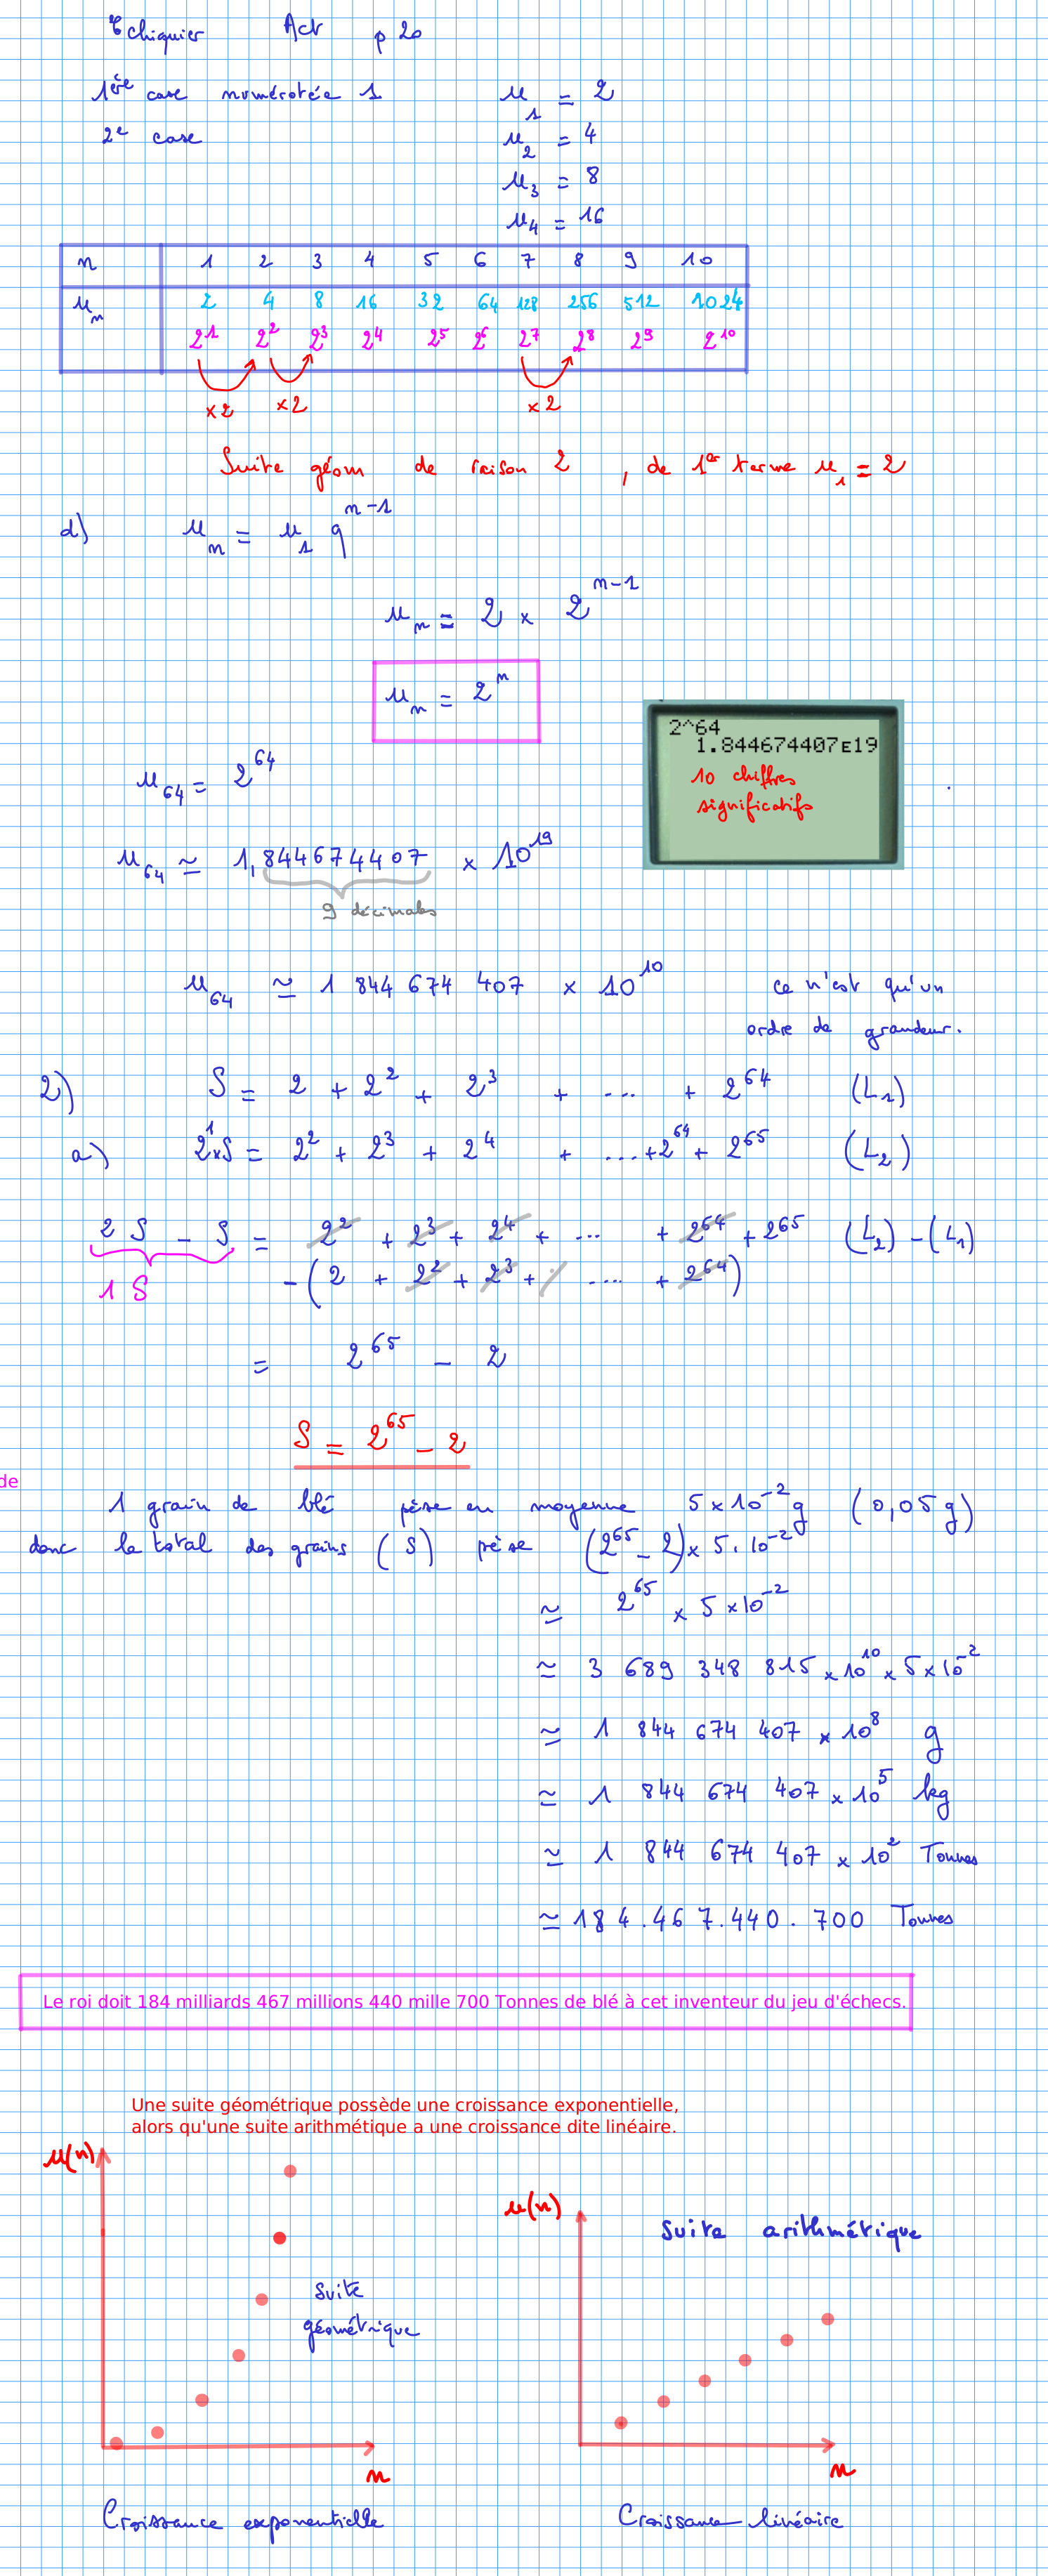 Echiquier Act p 20
1ère case numérotée 1 u₁ = 2
2e case u₂ = 4
u₃ = 8
u₄ = 16
n 1 2 3 4 5 6 7 8 9 10
uₙ 2 4 8 16 32 64 128 256 512 1024
2¹ 2² 2³ 2⁴ 2⁵ 2⁶ 2⁷ 2⁸ 2⁹ 2¹⁰
×2 ×2 ×2
Suite géom de raison 2 , de 1er terme u₁ = 2
d) uₙ = u₁ qⁿ⁻¹
uₙ = 2 × 2ⁿ⁻¹
uₙ = 2ⁿ
2^64
1.844674407E19
10 chiffres
significatifs
u₆₄ = 2⁶⁴
u₆₄ ≃ 1,844674407 × 10¹⁹
9 décimales
u₆₄ ≃ 1 844 674 407 × 10¹⁰ ce n'est qu'un
ordre de grandeur.
2) S = 2 + 2² + 2³ + ... + 2⁶⁴ (L₁)
a) 2¹×S = 2² + 2³ + 2⁴ + ... + 2⁶⁴ + 2⁶⁵ (L₂)
2 S - S = 2² + 2³ + 2⁴ + ... + 2⁶⁴ + 2⁶⁵ (L₂) - (L₁)
1 S - (2 + 2² + 2³ + .... + 2⁶⁴)
= 2⁶⁵ - 2
S = 2⁶⁵ - 2
de
1 grain de blé pèse en moyenne 5 × 10⁻² g (0,05 g)
donc le total des grains (S) pèse (2⁶⁵ - 2) × 5. 10⁻²
≃ 2⁶⁵ × 5 × 10⁻²
≃ 3 689 348 815 × 10¹⁰ × 5 × 10⁻²
≃ 1 844 674 407 × 10⁸ g
≃ 1 844 674 407 × 10⁵ kg
≃ 1 844 674 407 × 10² Tonnes
≃ 184.467.440.700 Tonnes
Le roi doit 184 milliards 467 millions 440 mille 700 Tonnes de blé à cet inventeur du jeu d'échecs.
Une suite géométrique possède une croissance exponentielle,
alors qu'une suite arithmétique a une croissance dite linéaire.
u(n)
suite
géométrique
n
Croissance exponentielle
u(n)
suite arithmétique
n
Croissance linéaire